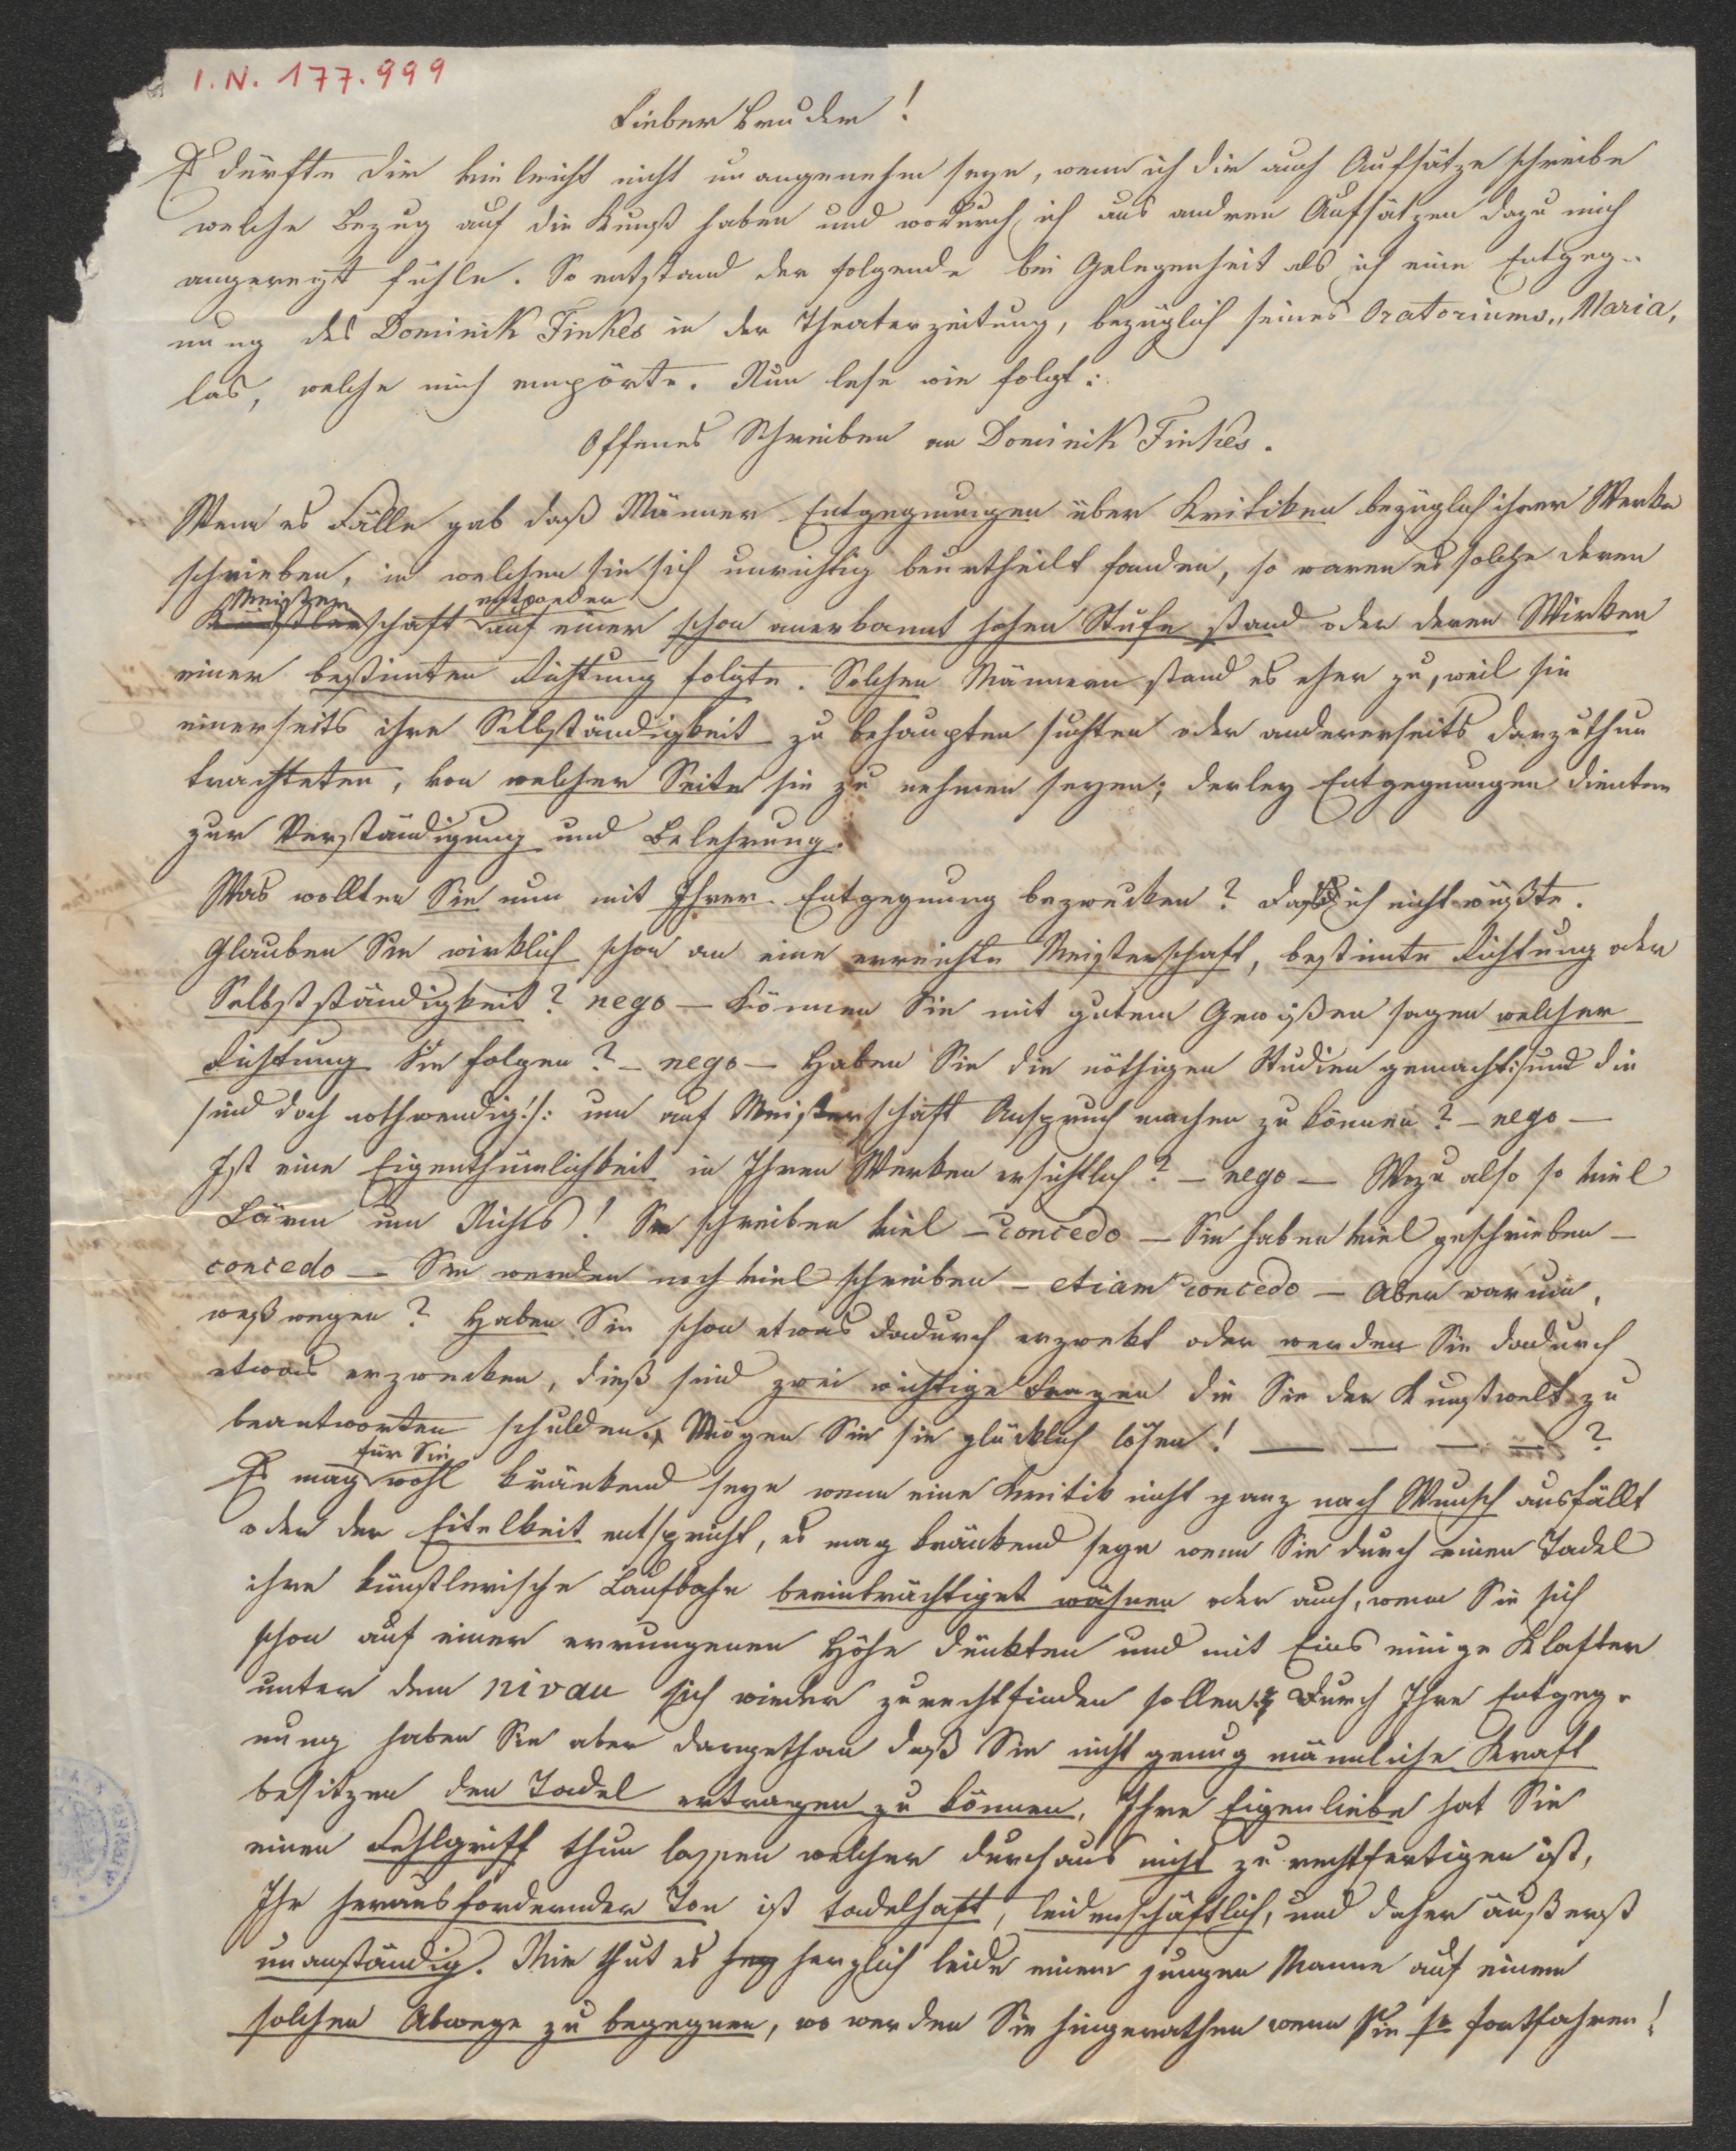 I.N. 177.999
Lieber Bruder!
Es dürfte dir vieleicht nicht unangenehm seyn, wenn ich dir auch Aufsätze schreibe
welche Bezug auf die Kunst haben und wodurch ich aus andren Aufsätzen dazu mich
angeregt fühle. So entstand der folgende bei Gelegenheit als ich eine Entgeg-
nung des Dominik Finkes in der Theaterzeitung, bezüglich seines Oratoriums „Maria,
las, welche mich empörte. Nun lese wie folgt:
Offenes Schreiben an Dominik Finkes.
Wenn es Fälle gab daß Männer Entgegnungen über Kritiken bezüglich ihrer Werke
schrieben, in welchen sie sich unrichtig beurtheilt fanden, so waren es solche deren
Meister entweder
Künstlerschaft auf einer schon anerkannt hohen Stufe stand oder deren Wirken
einer bestimten Richtung folgte. Solchen Männern stand es eher zu, weil sie
einerseits ihre Selbständigkeit zu behaupten suchten oder andererseits darzuthun
trachteten, von welcher Seite sie zu nehmen seyen; derley Entgegnungen dienten
zur Verständigung und Belehrung.
Was wollten Sie nun mit Ihrer Entgegnung bezwecken? Daß ich nicht wüßte.
Glauben Sie wirklich schon an eine erreichte Meisterschaft, bestimte Richtung oder
Selbstständigkeit? nego — Können Sie mit gutem Gewißen sagen welcher
Richtung Sie folgen? — nego — Haben Sie die nöthigen Studien gemacht /:und die
sind doch nothwendig!:/ um auf Meisterschaft Anspruch machen zu können? — nego —
Ist eine Eigenthümlichkeit in Ihren Werken ersichtlich? — nego — Wozu also so viel
Lärm um Nichts! Sie schreiben viel — concedo — Sie haben viel geschrieben —
concedo — Sie werden noch viel schreiben — etiam concedo — Aber warum,
weßwegen? Haben Sie schon etwas dadurch erzwekt oder werden Sie dadurch
etwas erzwecken, dieß sind zwei wichtige Fragen die Sie der Kunstwelt zu
beantworten schulden. Mögen Sie sie glücklich lösen! — — — — ?
für Sie
Es mag wohl kränkend seyn wenn eine Kritik nicht ganz nach Wunsch ausfällt
oder der Eitelkeit entspricht, es mag kränkend seyn wenn Sie durch einen Tadel
ihre künstlerische Laufbahn beeinträchtiget wähnen oder auch, wenn Sie sich
schon auf einer errungenen Höhe dünkten und mit Eins einige Klafter
unter dem nivau sich wieder zurechtfinden sollen; Durch Ihre Entgeg-
nung haben Sie aber dargethan daß Sie nicht genug männliche Kraft
besitzen den Tadel ertragen zu können, Ihre Eigenliebe hat Sie
einen Fehlgriff thun lassen welcher durchaus nicht zu rechtfertigen ist,
Ihr herausfordernder Ton ist tadelhaft, leidenschäftlich, und daher äußerst
unanständig. Mir thut es herzlich leide einem jungen Manne auf einem
solchen Abwege zu begegnen, wo werden Sie hingerathen wenn Sie so fortfahren!